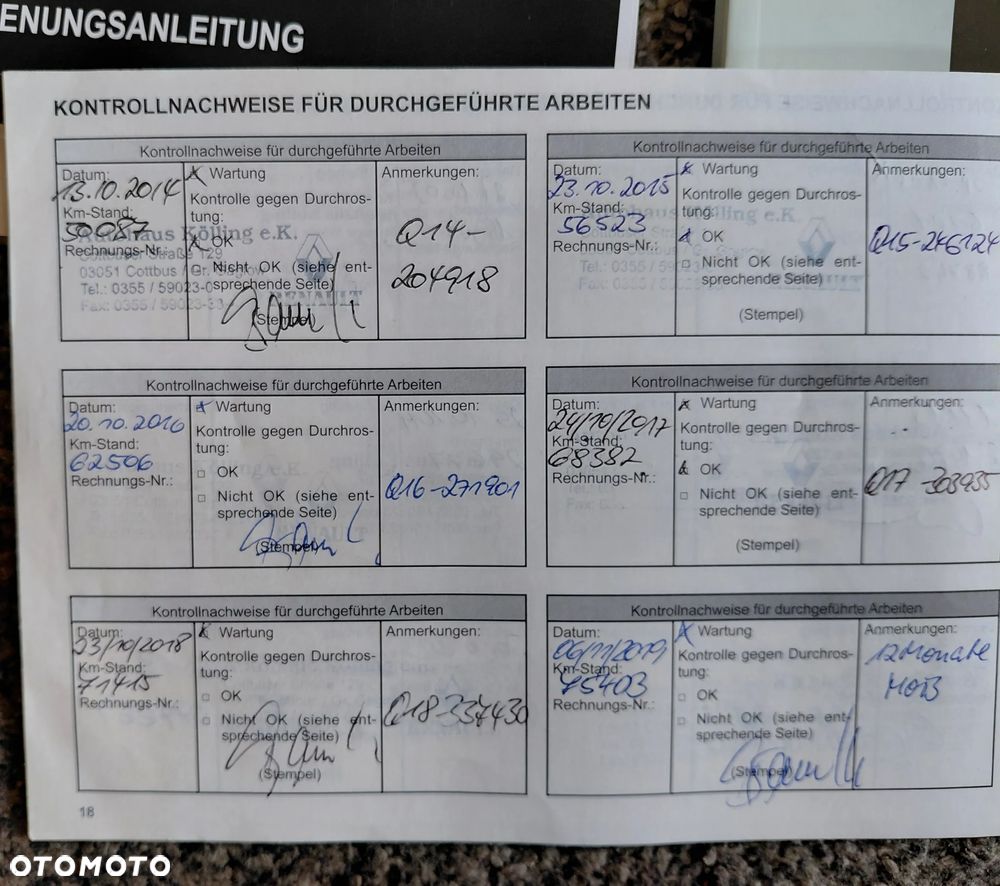 ENUNGSANLEITUNG
KONTROLLNACHWEISE FÜR DURCHGEFÜHRTE ARBEITEN
Kontrollnachweise für durchgeführte Arbeiten
Datum:
13.10.2014
Km-Stand:
50087
Rechnungs-Nr.:
Wartung
Kontrolle gegen Durchros-
tung:
OK
Nicht OK (siehe ent-
sprechende Seite)
(Stempel)
Autohaus Kölling e.K.
Cottbuser Straße 129
03051 Cottbus / Gr.
Tel.: 0355 / 59023-0
Fax: 0355 / 59023-33
RENAULT
Anmerkungen:
Q14-
204918
Kontrollnachweise für durchgeführte Arbeiten
Datum:
23.10.2015
Km-Stand:
56523
Rechnungs-Nr.:
Wartung
Kontrolle gegen Durchros-
tung:
OK
Nicht OK (siehe ent-
sprechende Seite)
(Stempel)
Kölling e.K.
Tel.: 0355 / 59023
Anmerkungen:
Q15-246124
Kontrollnachweise für durchgeführte Arbeiten
Datum:
20.10.2016
Km-Stand:
62506
Rechnungs-Nr.:
Wartung
Kontrolle gegen Durchros-
tung:
OK
Nicht OK (siehe ent-
sprechende Seite)
(Stempel)
Anmerkungen:
Q16-271901
Kontrollnachweise für durchgeführte Arbeiten
Datum:
24/10/2017
Km-Stand:
68382
Rechnungs-Nr.:
Wartung
Kontrolle gegen Durchros-
tung:
OK
Nicht OK (siehe ent-
sprechende Seite)
(Stempel)
Anmerkungen:
Q17-303955
Kontrollnachweise für durchgeführte Arbeiten
Datum:
23/10/2018
Km-Stand:
71415
Rechnungs-Nr.:
Wartung
Kontrolle gegen Durchros-
tung:
OK
Nicht OK (siehe ent-
sprechende Seite)
(Stempel)
Anmerkungen:
Q18-337430
Kontrollnachweise für durchgeführte Arbeiten
Datum:
06/11/2019
Km-Stand:
75403
Rechnungs-Nr.:
Wartung
Kontrolle gegen Durchros-
tung:
OK
Nicht OK (siehe ent-
sprechende Seite)
(Stempel)
Anmerkungen:
12 Monate
18
OTOMOTO